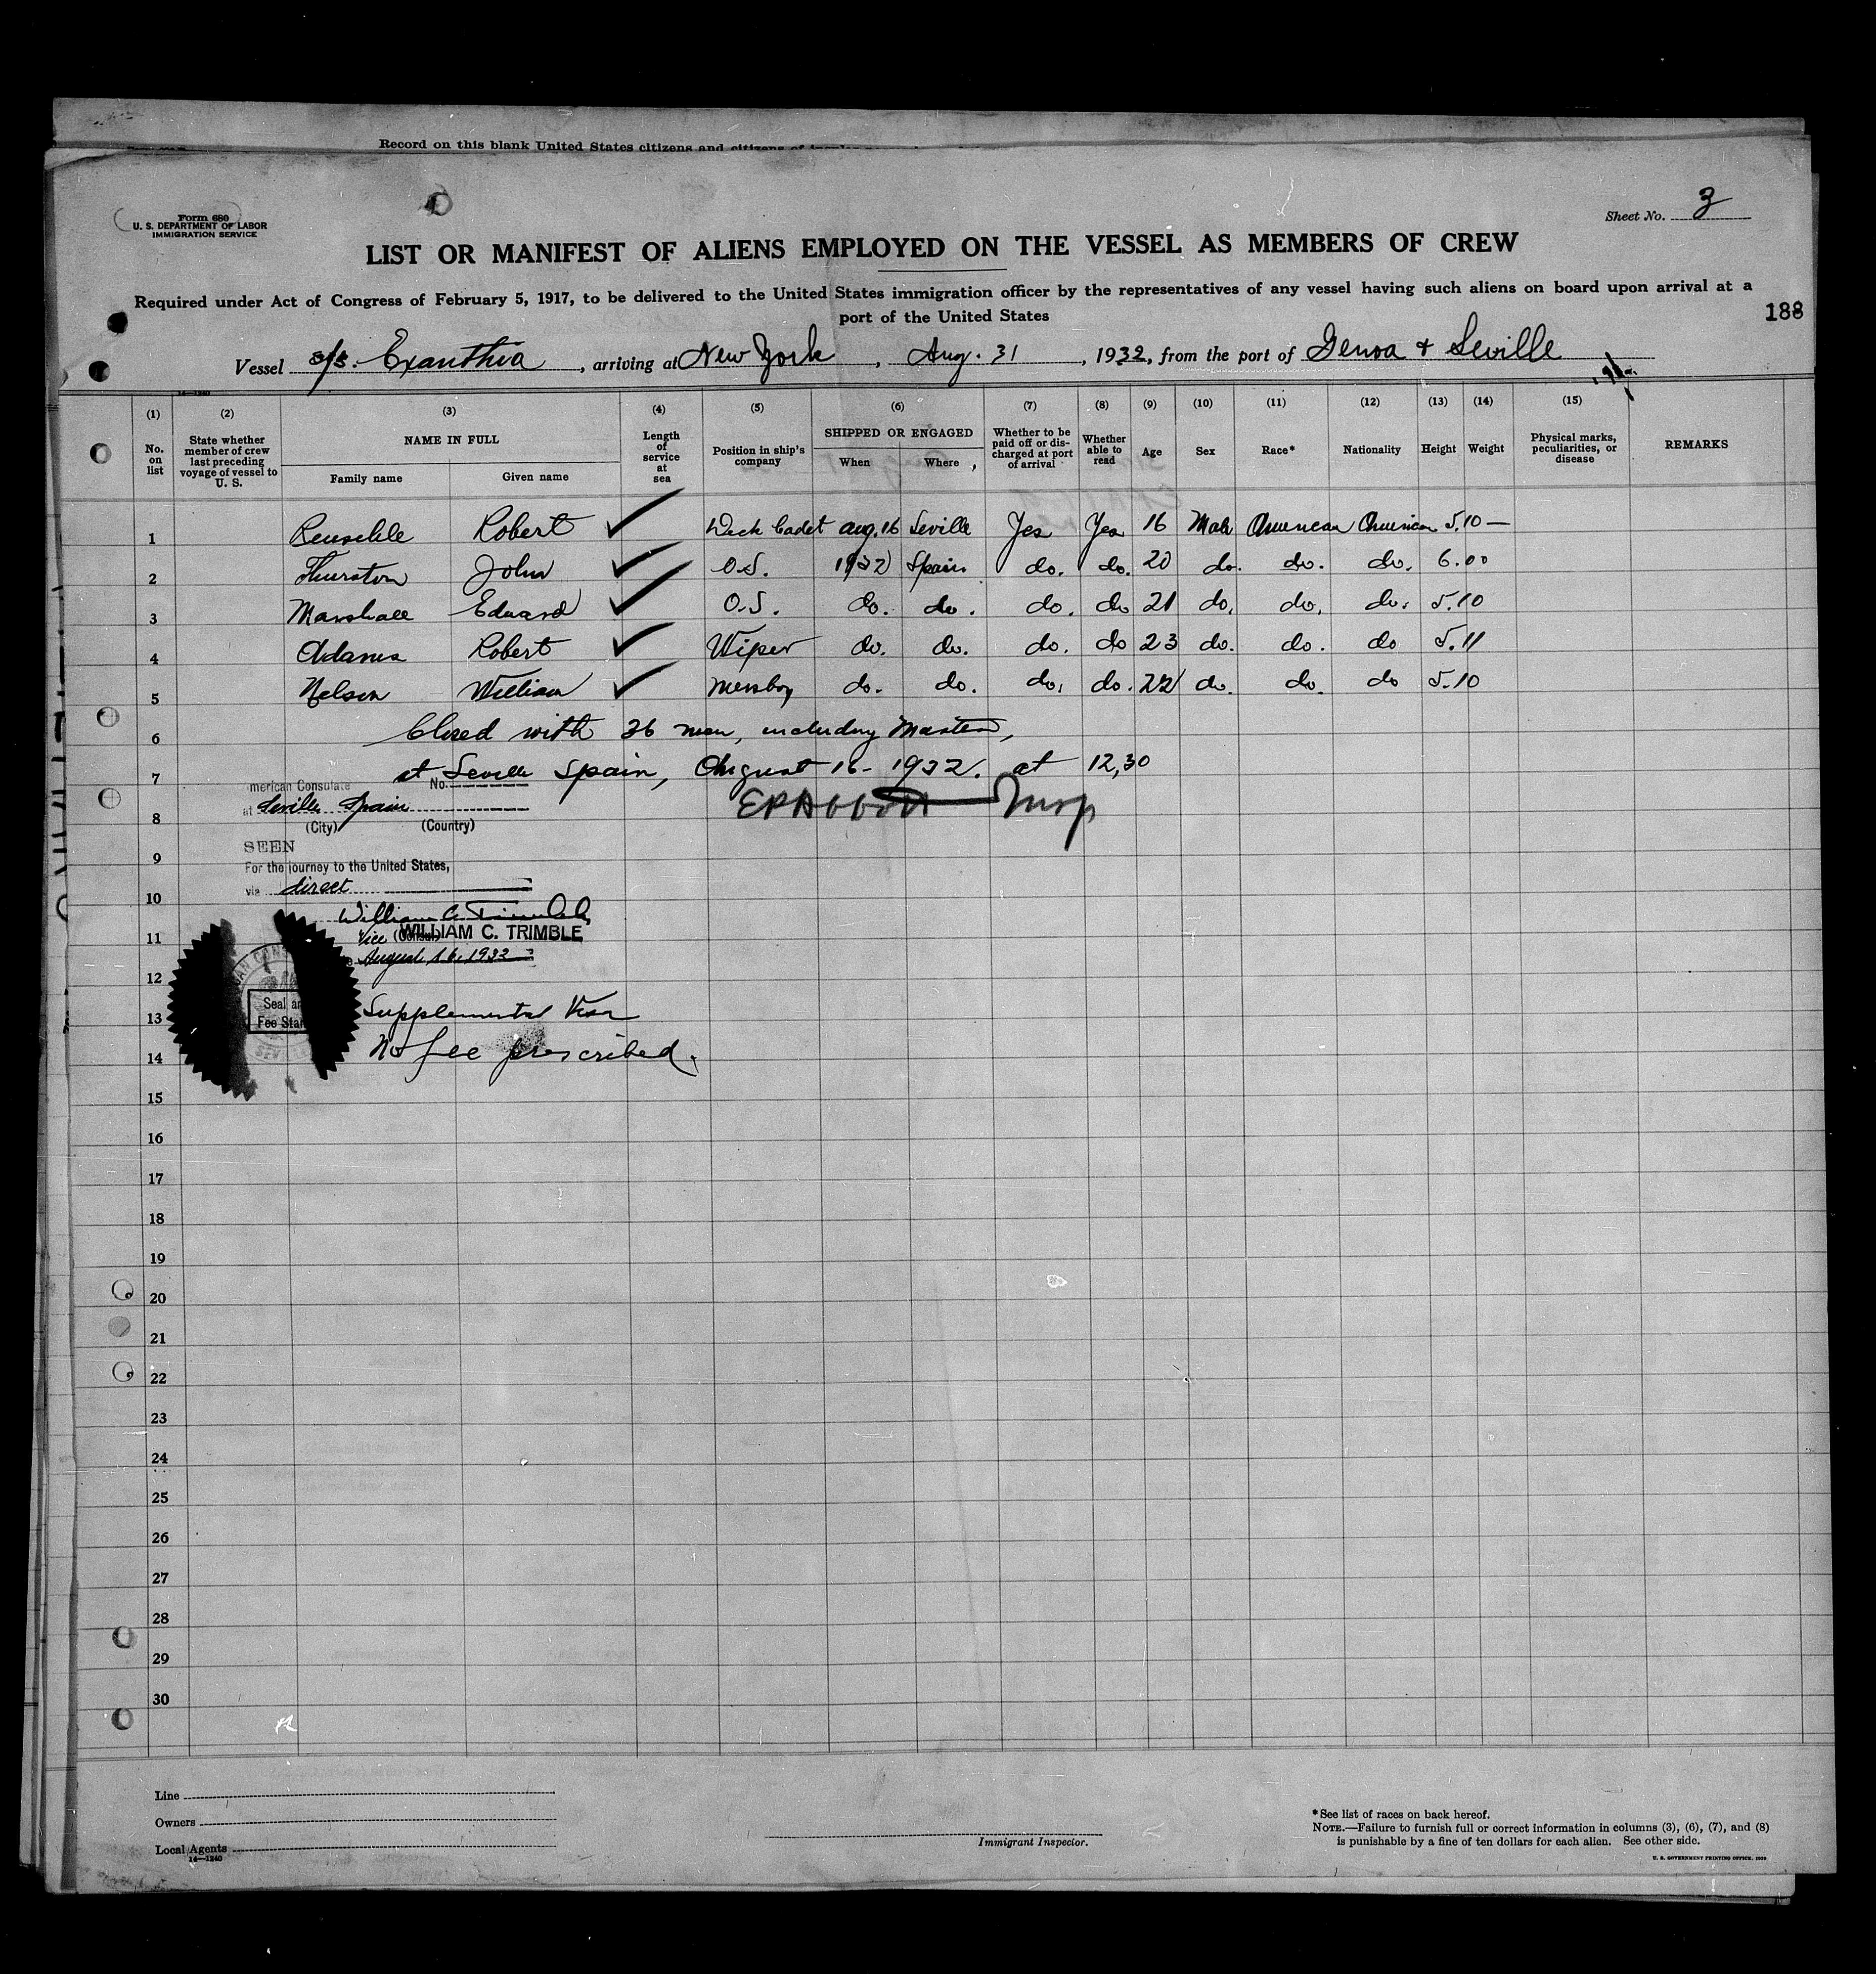 Record on this blank United States citizens and citizens of
Form 680
U. S. DEPARTMENT OF LABOR
IMMIGRATION SERVICE
Sheet No. 3
LIST OR MANIFEST OF ALIENS EMPLOYED ON THE VESSEL AS MEMBERS OF CREW
Required under Act of Congress of February 5, 1917, to be delivered to the United States immigration officer by the representatives of any vessel having such aliens on board upon arrival at a
port of the United States
188
Vessel s/s. Exanthia, arriving at New York, Aug. 31, 1932, from the port of Genoa + Seville
14—1240
(1) (2) (3) (4) (5) (6) (7) (8) (9) (10) (11) (12) (13) (14) (15)
No. on list
State whether member of crew last preceding voyage of vessel to U. S.
NAME IN FULL
Family name Given name
Length of service at sea
Position in ship's company
SHIPPED OR ENGAGED
When Where
Whether to be paid off or discharged at port of arrival
Whether able to read
Age Sex Race* Nationality Height Weight
Physical marks, peculiarities, or disease
REMARKS
1 Robert Deck Cadet Aug. 16 Seville Yes Yes 16 Male American American 5.10 —
2 Thurston John O.S. 1932 Spain do. do. 20 do. do. do. 6.00
3 Marshall Edward O.S. do. do. do. do 21 do. do. do. 5.10
4 Adams Robert Wiper do. do. do. do 23 do. do. do 5.11
5 Nelson William Messboy do. do. do. do. 22 do. do. do 5.10
6 Closed with 36 men, including Master,
7 at Seville Spain, August 16 - 1932. at 12,30
merican Consulate No.
at Seville Spain
8 (City) (Country)
EPAbbott Insp
SEEN
9 For the journey to the United States,
via direct
10 William C. Trimble
11 Vice (Consul) WILLIAM C. TRIMBLE
August 16. 1932
12
13 Supplemental Visa
Seal an
Fee Stam
14 No fee prescribed.
15
16
17
18
19
20
21
22
23
24
25
26
27
28
29
30
Line
Owners
Local Agents
14—1240
Immigrant Inspector.
* See list of races on back hereof.
NOTE.—Failure to furnish full or correct information in columns (3), (6), (7), and (8)
is punishable by a fine of ten dollars for each alien. See other side.
U. S. GOVERNMENT PRINTING OFFICE, 1929